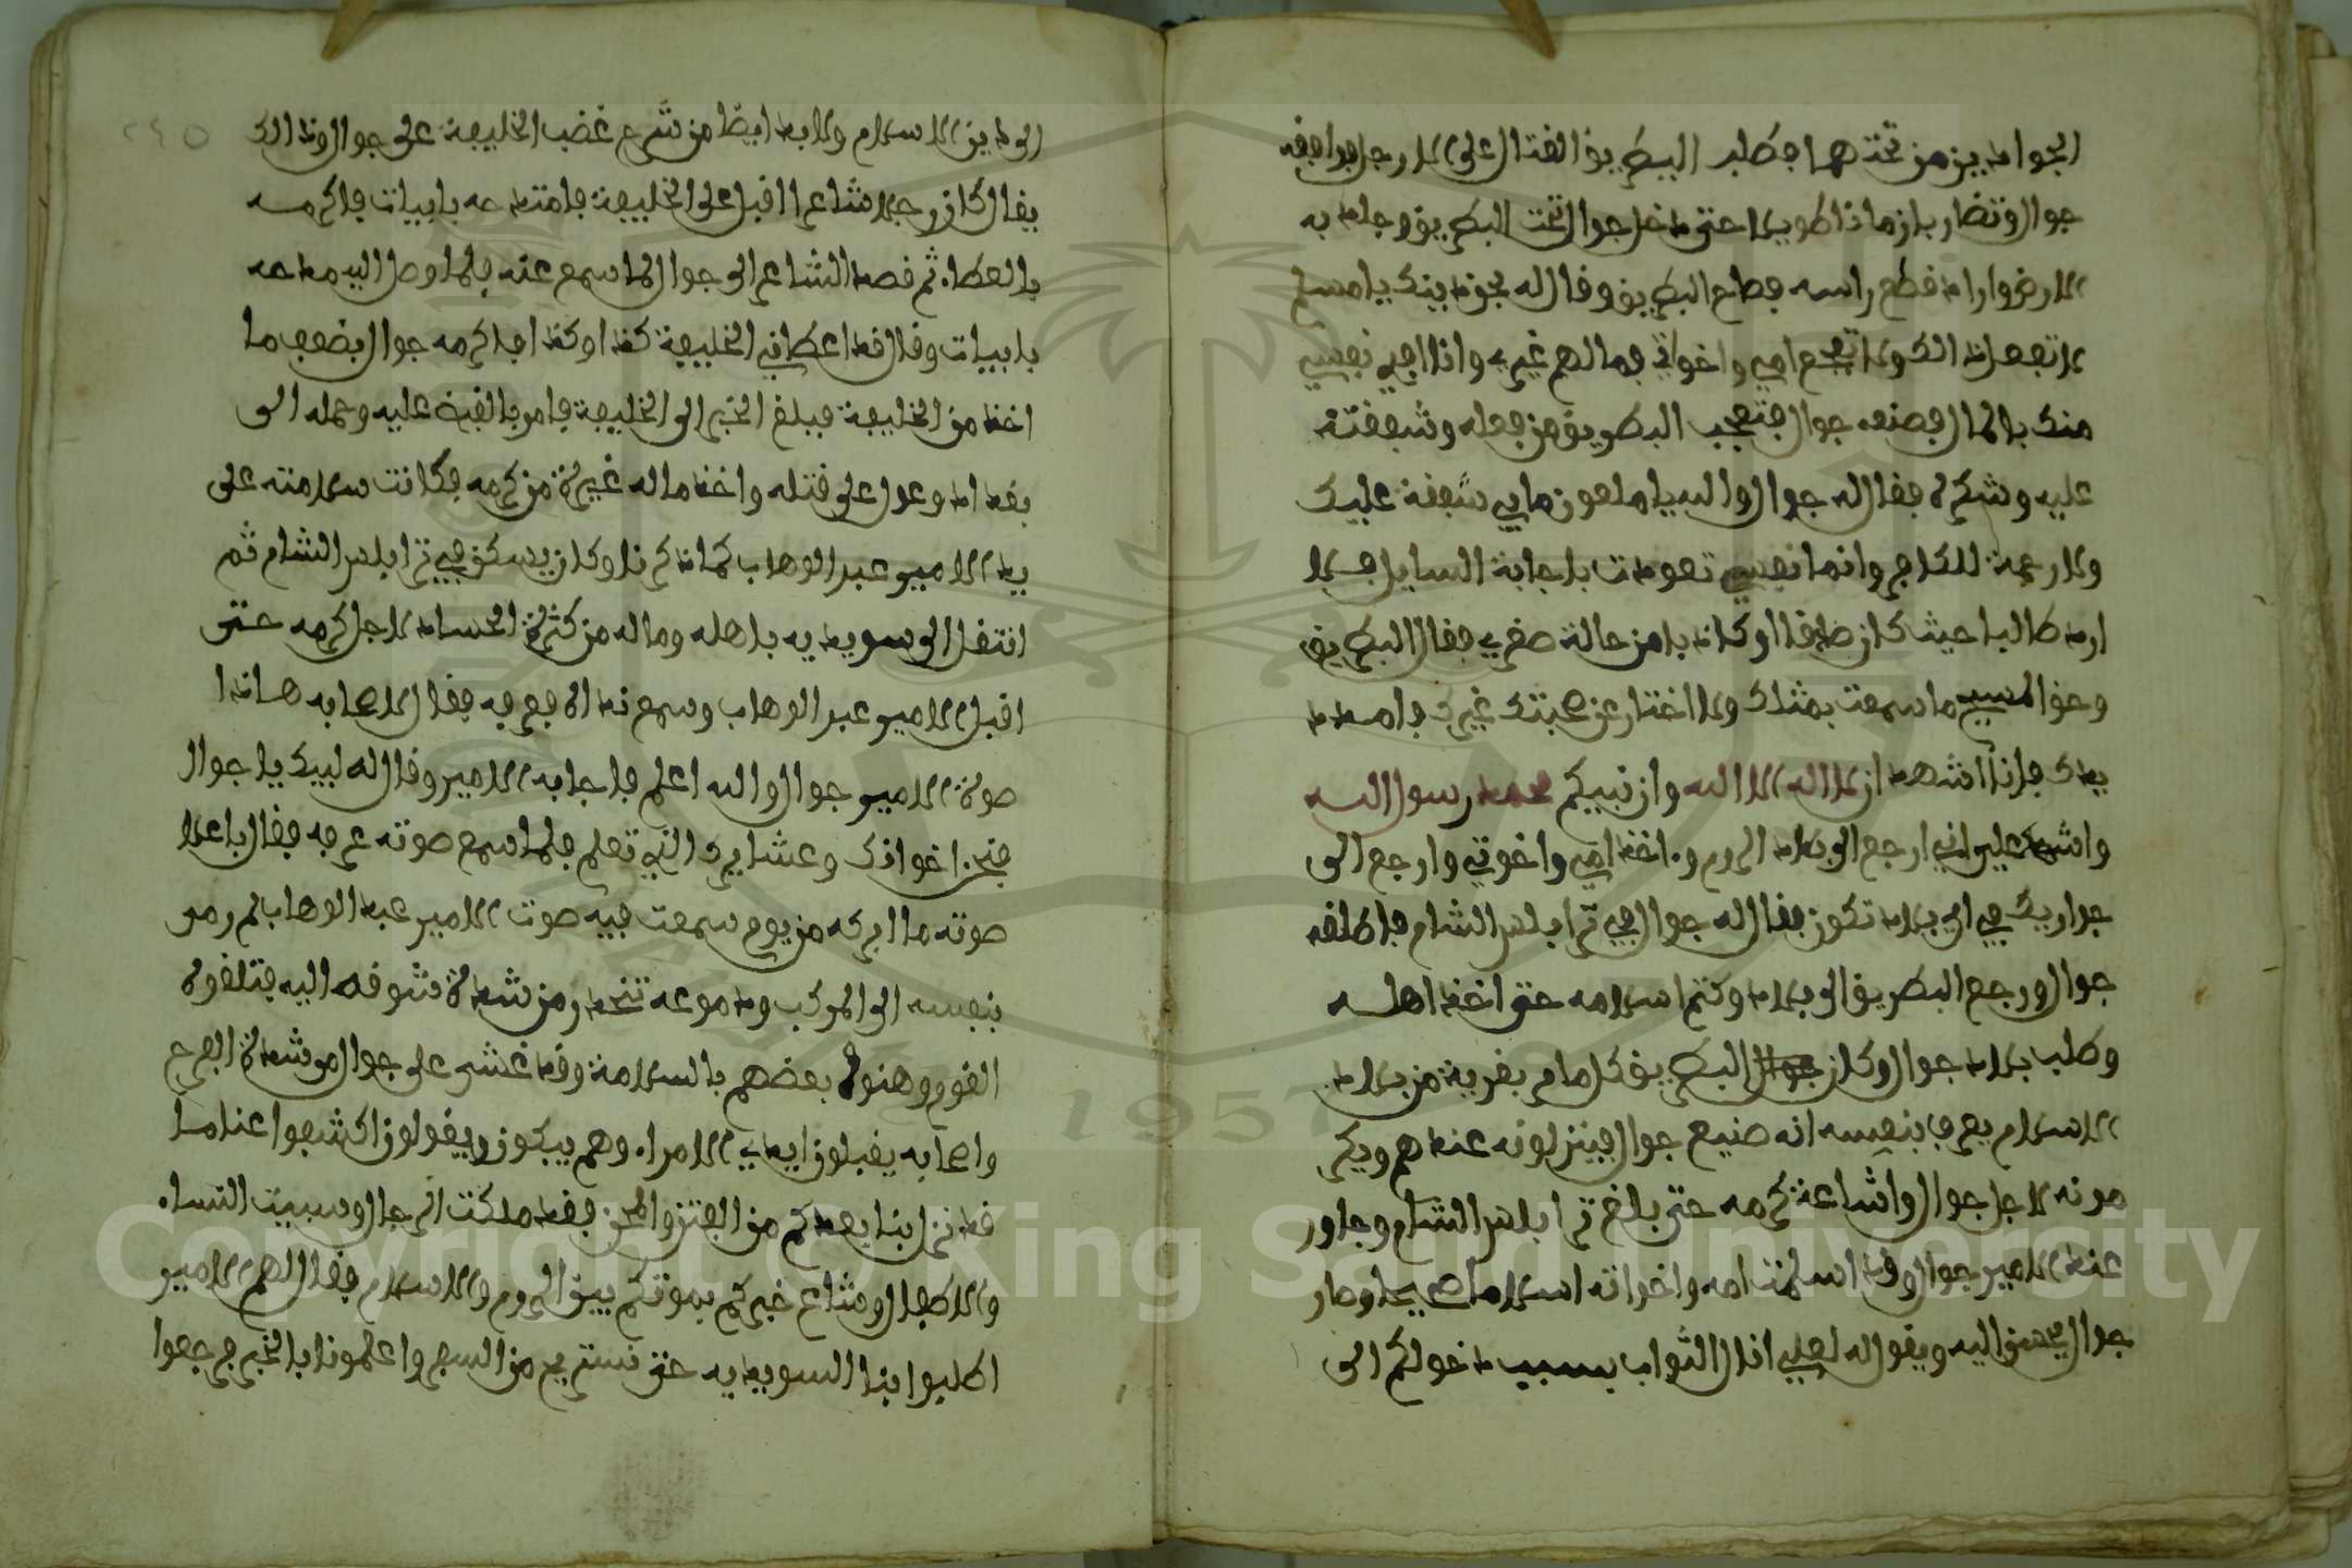 الجوادين من تحتهما فطلب البطريق القتال على الارجل فوافقه
جوال وتضاربا زمانا طويلا حتى دخل جوال تحت البطريق وجلد به
الارض واراد قطع راسه فصاح البطريق وقال له بحق دينك يا مسلم
لا تفعل ذالك ولا تفجع امي واخواتي فما لهم غيري وانا افدي نفسي
منك بالمال فصنعه جوال فتعجب البطريق من فعله وشفقته
عليه وشكره فقال له جوال والله يا ملعون ما بي شفقة عليك
ولا رحمة للكافر وانما نفسي تعودت باجابة السايل فلا
ارد طالبا حيث كان صادقا او كاذبا من حالة صغري فقال البطريق
وحق المسيح ما سمعت بمثلك ولا اختار عن صحبتك غيرك فامدد
يدك فانا اشهد ان لا اله الا الله وان نبيكم محمد رسول الله
واشهد علي اني ارجع الى بلاد الروم واخذ امي واخوتي وارجع الى
جوارك في اي بلاد تكون فقال له جوال في ترابلس الشام فاطلقه
جوال ورجع البطريق الى بلاده وكتم اسلامه حتى اخذ اهله
وطلب بلاد جوال وكان البطريق كل ما مر بقرية من بلاد
الاسلام يعرف بنفسه انه صنيع جوال فينزلونه عندهم ويكر
مونه لاجل جوال واشاعة كرمه حتى بلغ ترابلس الشام وجاور
عند الامير جوال وقد اسلمت امه واخواته اسلاما صحيحا وصار
جوال يحسن اليه ويقول له لعلي انال الثواب بسبب دخولكم الى
٢٤٥
الى دين الاسلام ولا بد ايضا من شرح غضب الخليفة على جوال وذالك
يقال كان رجلا شاعرا اقبل على الخليفة فامتدحه بابيات فاكرمه
بالعطاء ثم قصد الشاعر الى جوال لما سمع عنه فلما وصل اليه مدحه
بابيات وقال قد اعطاني الخليفة كذا وكذا فاكرمه جوال بضعف ما
اخذ من الخليفة فبلغ الخبر الى الخليفة فامر بالقبض عليه وحمله الى
بغداد وعول على قتله واخذ ماله غيرة من كرمه فكانت سلامته على
يد الامير عبد الوهاب كما ذكرنا وكان يسكن في ترابلس الشام ثم
انتقل الى سويديه باهله وماله من كثرة الحساد لاجل كرمه حتى
اقبل الامير عبد الوهاب وسمع نداه فعرفه فقال لاصحابه هذا
صوت الامير جوال والله اعلم فاجابه الامير وقال له لبيك يا جوال
فنحن اخوانك وعشايرك الذي تعلم فلما سمع صوته عرفه فقال باعلا
صوته ما ابركه من يوم سمعت فيه صوت الامير عبد الوهاب ثم رمى
بنفسه الى المركب ودموعه تنحدر من شدة شوقه اليه فتلقوه
القوم وهنوه بعضهم بالسلامة وقد غشي على جوال من شدة الفرح
واصحابه يقبلون ايدي الامراء وهم يبكون ويقولون اكشفوا عنا ما
قد نزل بنا بعدكم من الفتن والمحن فقد ملكت الرجال وسبيت النساء
والاطفال وشاع خبركم بموتكم بين الروم والاسلام فقال لهم الامير
اطلبوا بنا السويديه حتى نستريح من السفر واعلمونا بالخبر فرجعوا